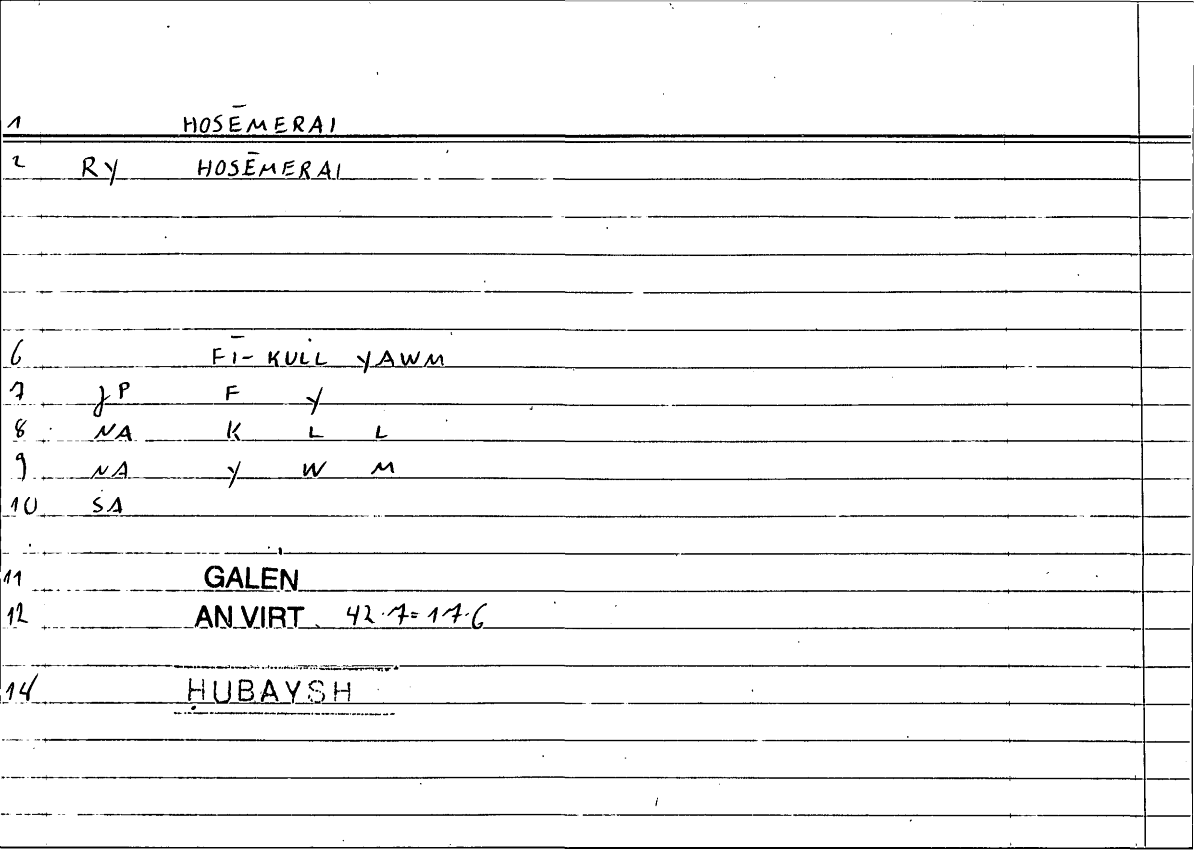 1 HOSĒMERAI
2 RY HOSĒMERAI
6 FĪ-KULL YAWM
7 JP F Y
8 NA K L L
9 NA Y W M
10 SA
11 GALEN
12 AN VIRT 42.7=17.6
14 ḤUBAYSH